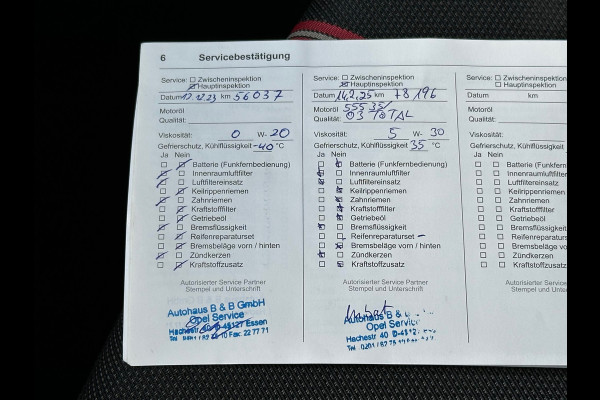 6 Servicebestätigung
Service: Zwischeninspektion
Hauptinspektion
Datum 12.23 km 56037
Motoröl
Qualität:
Viskosität: 0 W- 20
Gefrierschutz, Kühlflüssigkeit -40 °C
Ja Nein
Batterie (Funkfernbedienung)
Innenraumluftfilter
Luftfiltereinsatz
Keilrippenriemen
Zahnriemen
Kraftstofffilter
Getriebeöl
Bremsflüssigkeit
Reifenreparaturset
Bremsbeläge vorn / hinten
Zündkerzen
Kraftstoffzusatz
Autorisierter Service Partner
Stempel und Unterschrift
Autohaus B & B GmbH
Opel Service
Hachestr 40 D-45127 Essen
Tel 0201 / 82 10 Fax: 22 77 71
Service: Zwischeninspektion
Hauptinspektion
Datum 14.2.25 km 78196
Motoröl 55535/
Qualität: 03 TOTAL
Viskosität: 5 W- 30
Gefrierschutz, Kühlflüssigkeit 35 °C
Ja Nein
Batterie (Funkfernbedienung)
Innenraumluftfilter
Luftfiltereinsatz
Keilrippenriemen
Zahnriemen
Kraftstofffilter
Getriebeöl
Bremsflüssigkeit
Reifenreparaturset
Bremsbeläge vorn / hinten
Zündkerzen
Kraftstoffzusatz
Autorisierter Service Partner
Stempel und Unterschrift
Autohaus B & B
Opel Service
Hachestr 40 D-4512
Tel 0201 / 82
Service: Zwischeninspektion
Hauptinspektion
Datum km
Motoröl
Qualität:
Viskosität: W-
Gefrierschutz, Kühlflüssigkeit
Ja Nein
Batterie (Funkfern
Innenraumluftfilter
Luftfiltereinsatz
Keilrippenriemen
Zahnriemen
Kraftstofffilter
Getriebeöl
Bremsflüssigkeit
Reifenreparaturse
Bremsbeläge vo
Zündkerzen
Kraftstoffzusatz
Autorisierter Service
Stempel und Unters